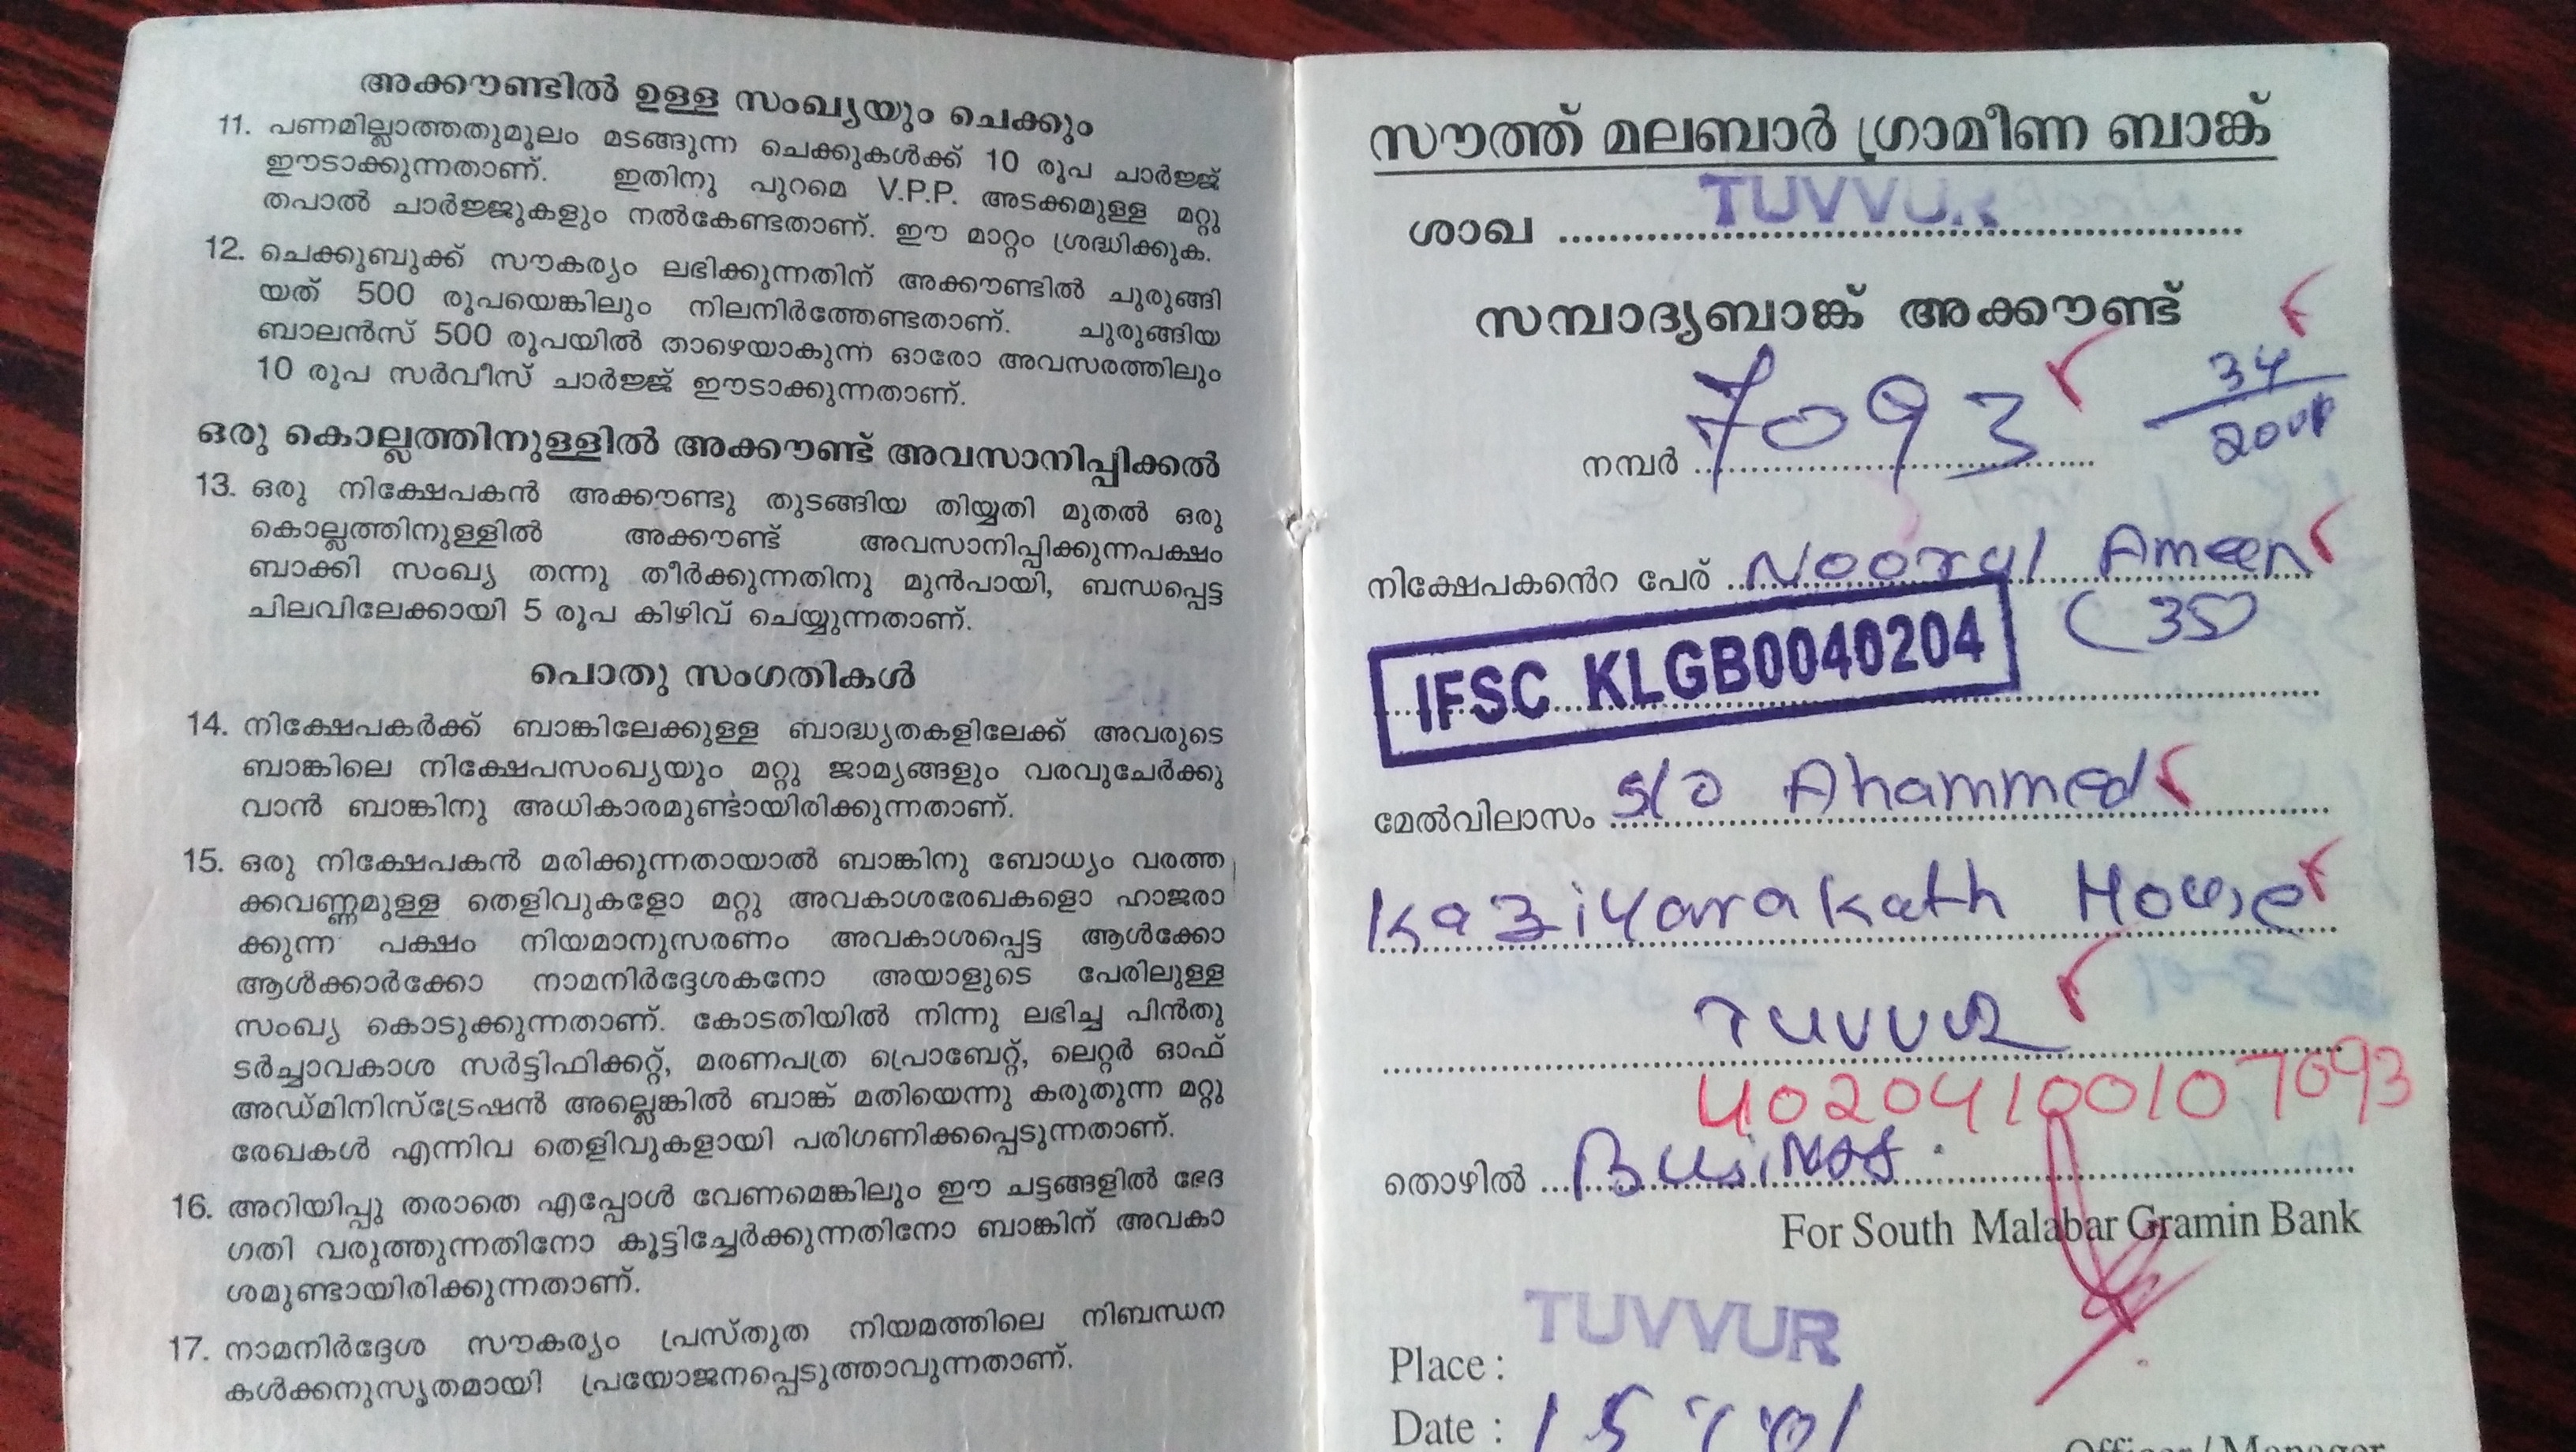 അക്കൗണ്ടിൽ ഉള്ള സംഖ്യയും ചെക്കും
11. പണമില്ലാത്തതുമൂലം മടങ്ങുന്ന ചെക്കുകൾക്ക് 10 രൂപ ചാർജ്ജ്
ഈടാക്കുന്നതാണ്. ഇതിനു പുറമെ V.P.P. അടക്കമുള്ള മറ്റു
തപാൽ ചാർജ്ജുകളും നൽകേണ്ടതാണ്. ഈ മാറ്റം ശ്രദ്ധിക്കുക.
12. ചെക്കുബുക്ക് സൗകര്യം ലഭിക്കുന്നതിന് അക്കൗണ്ടിൽ ചുരുങ്ങി
യത് 500 രൂപയെങ്കിലും നിലനിർത്തേണ്ടതാണ്. ചുരുങ്ങിയ
ബാലൻസ് 500 രൂപയിൽ താഴെയാകുന്ന ഓരോ അവസരത്തിലും
10 രൂപ സർവീസ് ചാർജ്ജ് ഈടാക്കുന്നതാണ്.
ഒരു കൊല്ലത്തിനുള്ളിൽ അക്കൗണ്ട് അവസാനിപ്പിക്കൽ
13. ഒരു നിക്ഷേപകൻ അക്കൗണ്ടു തുടങ്ങിയ തിയ്യതി മുതൽ ഒരു
കൊല്ലത്തിനുള്ളിൽ അക്കൗണ്ട് അവസാനിപ്പിക്കുന്നപക്ഷം
ബാക്കി സംഖ്യ തന്നു തീർക്കുന്നതിനു മുൻപായി, ബന്ധപ്പെട്ട
ചിലവിലേക്കായി 5 രൂപ കിഴിവ് ചെയ്യുന്നതാണ്.
പൊതു സംഗതികൾ
14. നിക്ഷേപകർക്ക് ബാങ്കിലേക്കുള്ള ബാദ്ധ്യതകളിലേക്ക് അവരുടെ
ബാങ്കിലെ നിക്ഷേപസംഖ്യയും മറ്റു ജാമ്യങ്ങളും വരവുചേർക്കു
വാൻ ബാങ്കിനു അധികാരമുണ്ടായിരിക്കുന്നതാണ്.
15. ഒരു നിക്ഷേപകൻ മരിക്കുന്നതായാൽ ബാങ്കിനു ബോധ്യം വരത്ത
ക്കവണ്ണമുള്ള തെളിവുകളോ മറ്റു അവകാശരേഖകളൊ ഹാജരാ
ക്കുന്ന പക്ഷം നിയമാനുസരണം അവകാശപ്പെട്ട ആൾക്കോ
ആൾക്കാർക്കോ നാമനിർദ്ദേശകനോ അയാളുടെ പേരിലുള്ള
സംഖ്യ കൊടുക്കുന്നതാണ്. കോടതിയിൽ നിന്നു ലഭിച്ച പിൻതു
ടർച്ചാവകാശ സർട്ടിഫിക്കറ്റ്, മരണപത്ര പ്രൊബേറ്റ്, ലെറ്റർ ഓഫ്
അഡ്മിനിസ്ട്രേഷൻ അല്ലെങ്കിൽ ബാങ്ക് മതിയെന്നു കരുതുന്ന മറ്റു
രേഖകൾ എന്നിവ തെളിവുകളായി പരിഗണിക്കപ്പെടുന്നതാണ്.
16. അറിയിപ്പു തരാതെ എപ്പോൾ വേണമെങ്കിലും ഈ ചട്ടങ്ങളിൽ ഭേദ
ഗതി വരുത്തുന്നതിനോ കൂട്ടിച്ചേർക്കുന്നതിനോ ബാങ്കിന് അവകാ
ശമുണ്ടായിരിക്കുന്നതാണ്.
17. നാമനിർദ്ദേശ സൗകര്യം പ്രസ്തുത നിയമത്തിലെ നിബന്ധന
കൾക്കനുസൃതമായി പ്രയോജനപ്പെടുത്താവുന്നതാണ്.
സൗത്ത് മലബാർ ഗ്രാമീണ ബാങ്ക്
ശാഖ TUVVUR
സമ്പാദ്യബാങ്ക് അക്കൗണ്ട്
നമ്പർ 7093 34/2001
നിക്ഷേപകന്റെ പേര് Noorul Ameen
(35)
IFSC KLGB0040204
മേൽവിലാസം S/o Ahammed
Kaziyarakath House
TUVVUR
40204100107093
തൊഴിൽ Business.
For South Malabar Gramin Bank
Place : TUVVUR
Date :
Officer / Manager